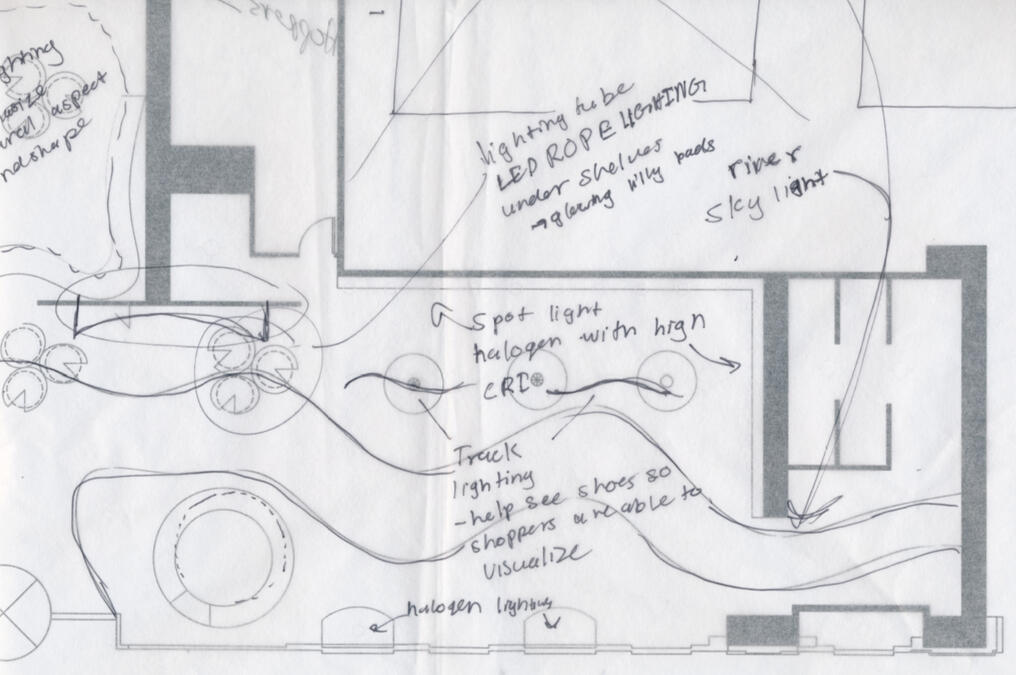 Hoppers
aspect
lighting tube
LED ROPE LIGHTING
under shelves
→ glowing lilly pads
river
sky light
spot light
halogen with high
CRI
Track
lighting
- help see shoes so
shoppers are able to
visualize
halogen lighting